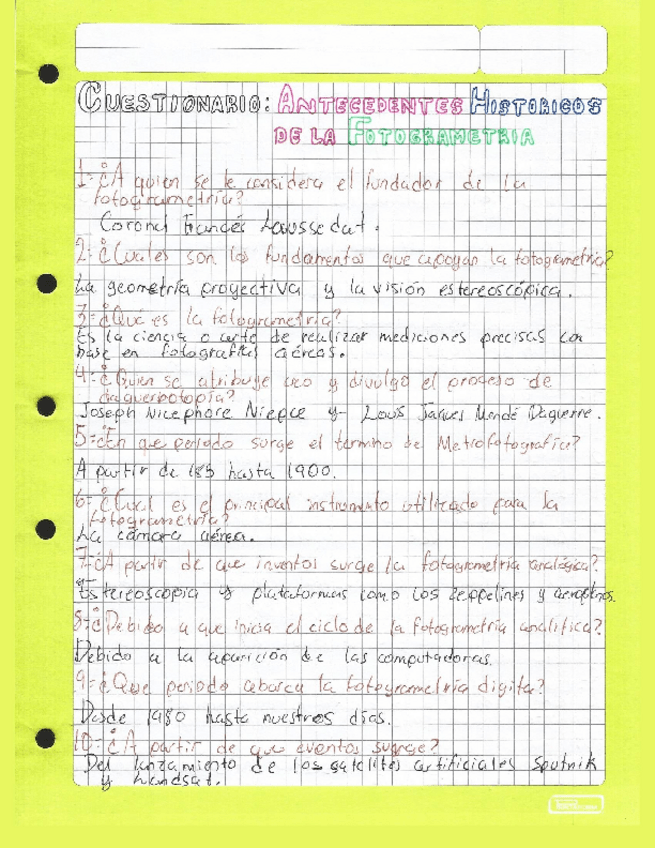 CUESTIONARIO: ANTECEDENTES HISTORICOS
DE LA FOTOGRAMETRIA
1-¿A quien se le considera el fundador de la
fotogrametria?
Coronel Francés Laussedat.
2-¿Cuales son los fundamentos que apoyan la fotogrametria?
La geometría proyectiva y la visión estereoscópica.
3-¿Qué es la fotogrametria?
Es la ciencia o arte de realizar mediciones precisas con
base en fotografías aéreas.
4-¿Quien se atribuye creo y divulgó el proceso de
daguerrotopía?
Joseph Nicephore Niepce y Lous Jaques Mandé Daguerre.
5-¿En que periodo surge el termino de Metrofotografía?
A partir de 185 hasta 1900.
6-¿Cual es el principal instrumento utilizado para la
fotogrametria?
La cámara aérea.
7-¿A partir de que inventos surge la fotogrametría analógica?
Estereoscopia y plataformas como los zeppelines y aeroplanos.
8-¿Debido a que inicia el ciclo de la fotogrametría analitica?
Debido a la aparición de las computadoras.
9-¿Que periodo abarca la fotogrametría digital?
Desde 1980 hasta nuestros días.
10-¿A partir de que eventos surge?
Del lanzamiento de los satelites artificiales Sputnik
y Landsat.